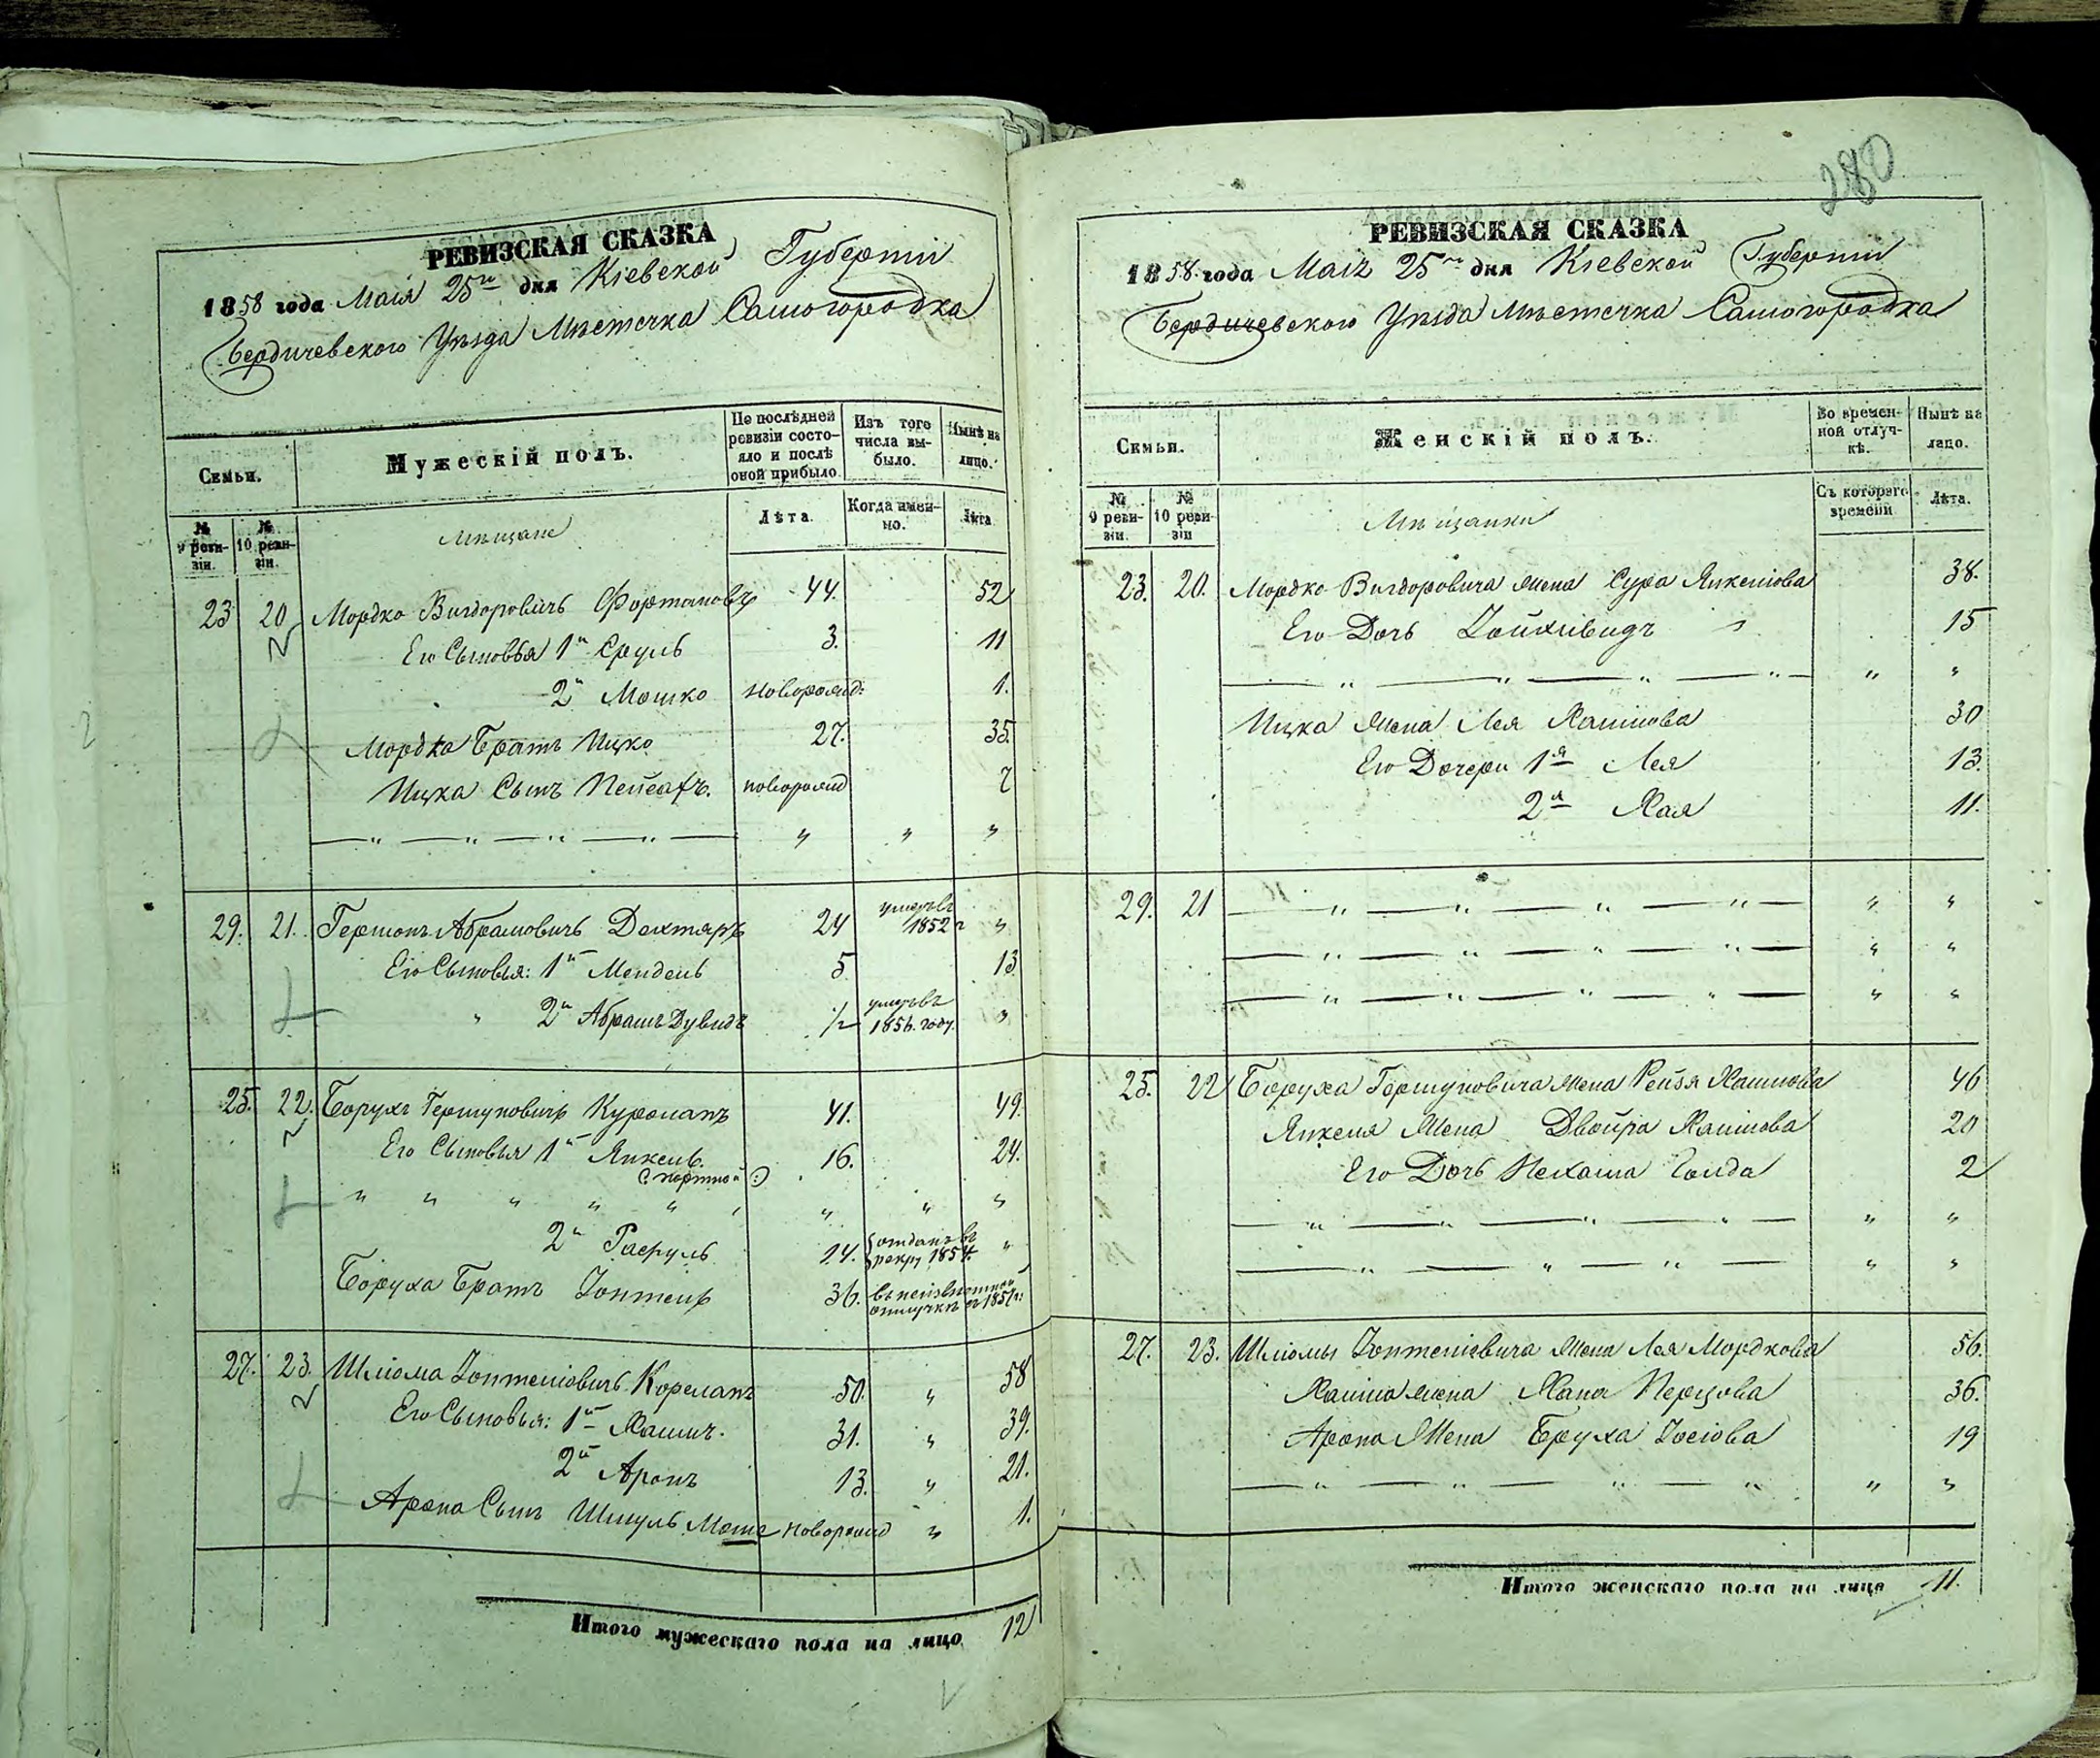 РЕВИЗСКАЯ СКАЗКА
1858 года Маія 25го дня Кіевской Губерніи
Бердичевскаго Уѣзда Мѣстечка Самогородка
Семьи.
Мужескій полъ.
По послѣдней ревизіи состояло и послѣ оной прибыло.
Изъ того числа выбыло.
Нынѣ на лицо.
№ 9 ревизіи.
№ 10 ревизіи.
Мѣщане
Лѣта.
Когда именно.
Лѣта
23 20 Мордко Вигдоровичъ Фортановъ 44. 52
Его Сыновья 1й Сруль 3. 11
2й Мошко новорожд: 1.
Мордка Братъ Ицко 27. 35.
Ицка Сынъ Пейсахъ. новорожд 7
— " — " — " — " — " " "
29. 21. Гершонъ Абрамовичъ Дохтяръ 24 умеръ въ 1852 г "
Его Сыновья: 1й Мендель 5 13
" 2й Абрамъ Дувидъ 1/2 умеръ въ 1856. году. "
25. 22. Борухъ Гершуновичъ Куроланъ 41. 49.
Его Сыновья 1й Янкель. 16. 24.
(: портной :)
" " " " " " " " "
2й Расруль 14. отданъ въ рекру 1854. "
Боруха Братъ Зонтель 36. въ неизвѣстной отлучкѣ съ 185
27. 23. Шліома Зонтеліовичъ Кореланъ 50. " 58
Его Сыновья: 1й Хаимъ. 31. " 39.
2й Аронъ 13. " 21.
Арона Сынъ Шмуль Моше новорожд " 1.
Итого мужескаго пола на лицо 12
280
РЕВИЗСКАЯ СКАЗКА
1858 года Маія 25го дня Кіевской Губерніи
Бердичевскаго Уѣзда Мѣстечка Самогородка
Семьи.
Женскій полъ.
Во временной отлучкѣ.
Нынѣ на лицо.
№ 9 ревизіи.
№ 10 ревизіи
Мѣщанки
Съ котораго времени
Лѣта.
23. 20. Мордко Вигдоровича Жена Сура Янкеліова 38.
Его Дочь 15
— " — " — " — " — " "
Ицка Жена Лея Хаимова 30
Его Дочери 1я Лея 13.
2я Хая 11.
29. 21 — " — " — " — " — " "
— " — " — " — " — " "
— " — " — " — " — " "
25. 22 Боруха Гершуновича Жена Рейзя Хаимова 46
Янкеля Жена Двойра Хаимова 20
Его Дочь Нехама Голда 2
— " — " — " — " — " "
— " — " — " — " — " "
27. 23. Шліомы Зонтеліовича Жена Лея Мордкова 56.
Хаима жена Хана Перцова 36.
Арона Жена Бруха Іосіова 19
— " — " — " — " — " "
Итого женскаго пола на лице 11.